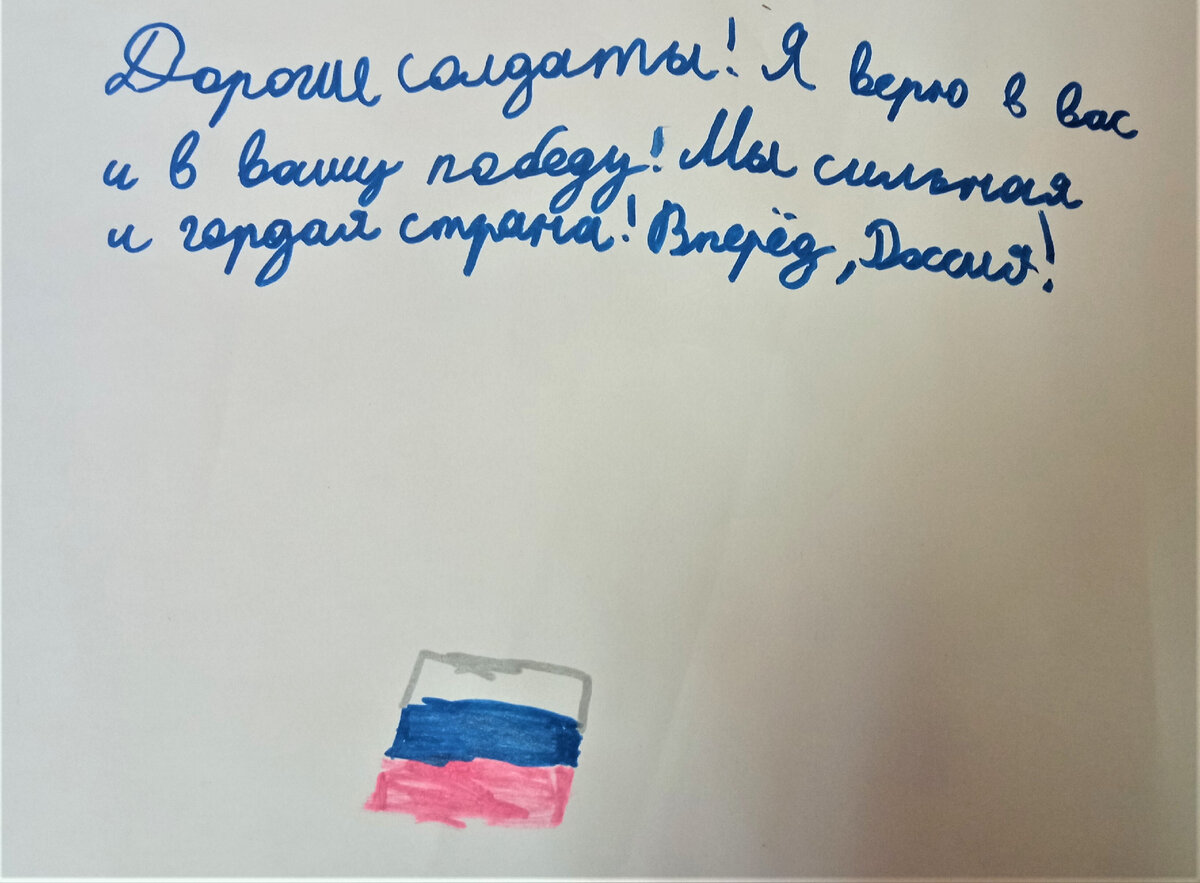 Дорогие солдаты! Я верю в вас
и в вашу победу! Мы сильная
и гордая страна! Вперёд, Россия!